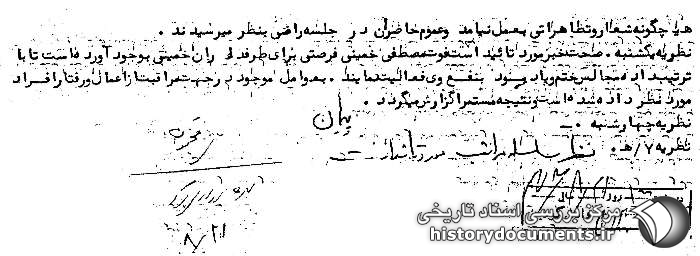 هیچگونه شعار و تظاهراتی بعمل نیامد و عموم حاضران در جلسه راضی بنظر میرسیدند .
نظریه یکشنبه . صحت خبر مورد تائید است فوت مصطفی خمینی فرصتی برای طرفداران خمینی بوجود آورده است تا با
ترتیب دادن مجالس ختم و یادبود بنفع وی فعالیت نمایند . به عوامل موجود در جهت مراقبت از اعمال و رفتار افراد
مورد نظر داده شده است و نتیجه مستمرا گزارش میگردد .
نظریه چهارشنبه .
نظریه ۷/ ه . نظر سلسله مراتب مورد تائید است
۸/۲۱
مرکز بررسی اسناد تاریخی
historydocuments.ir